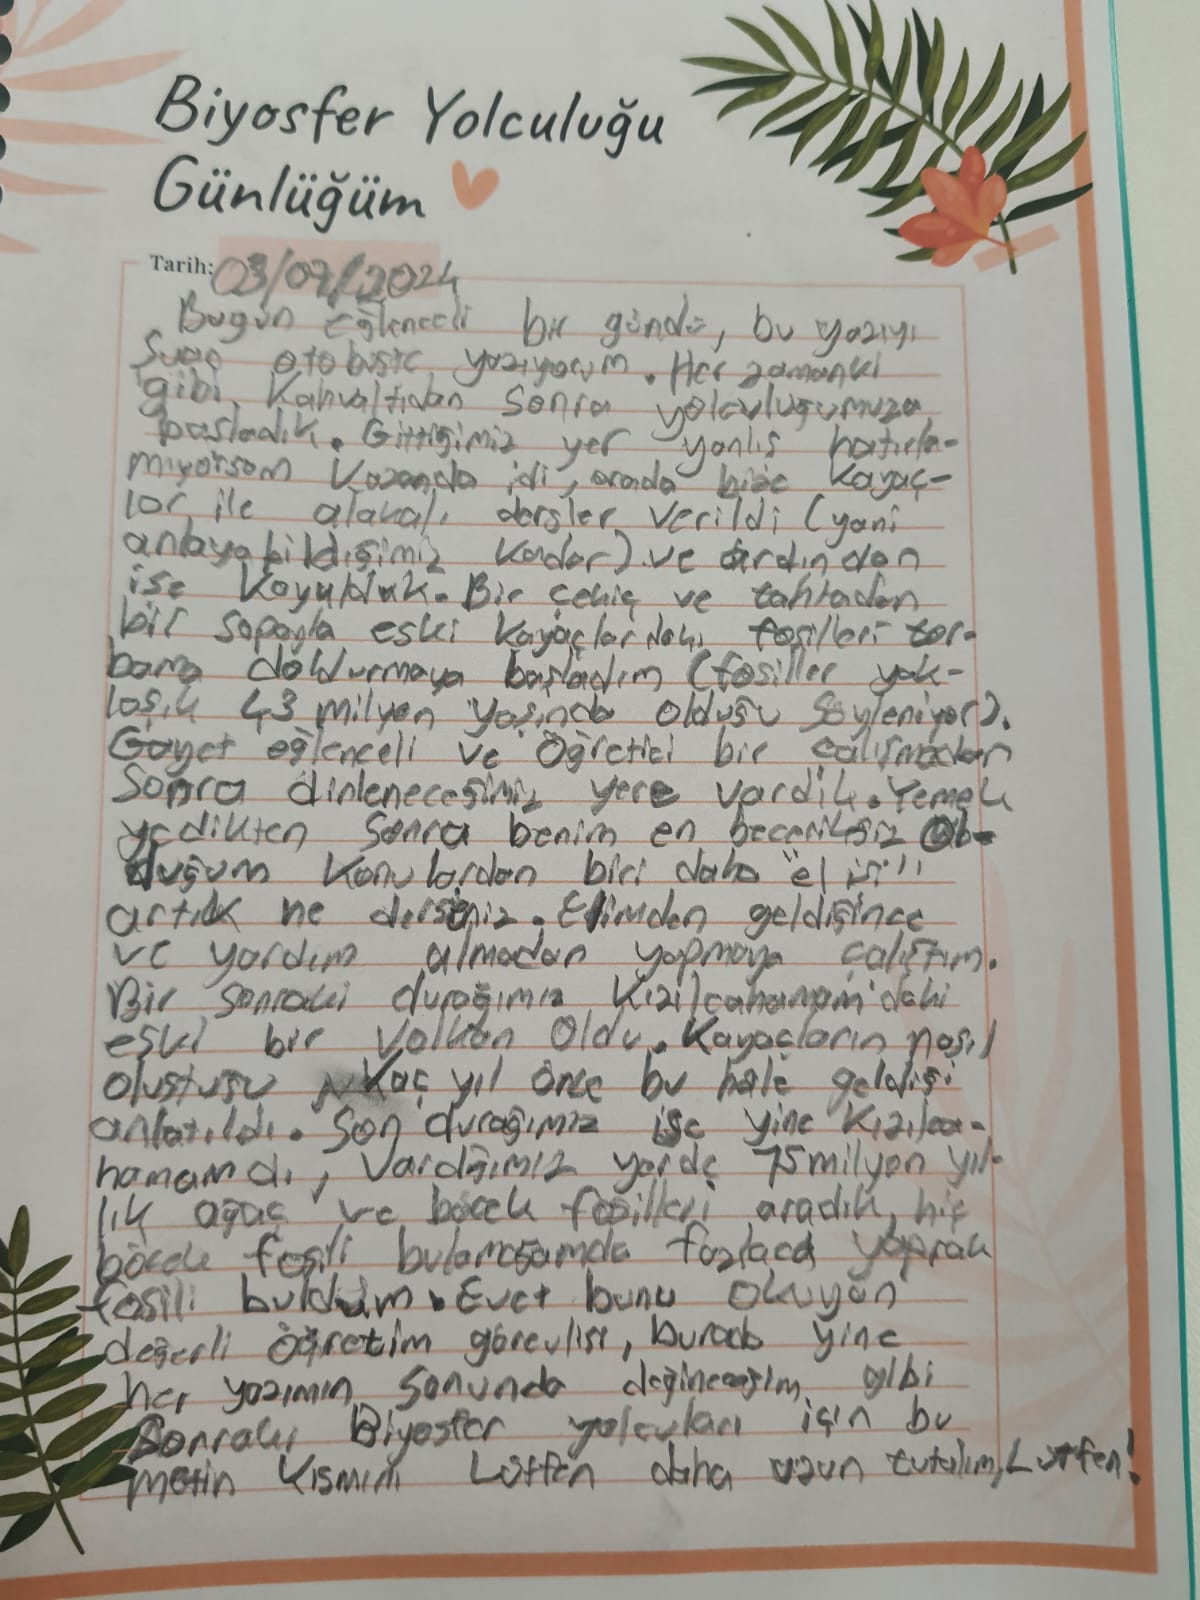 Biyosfer Yolculuğu
Günlüğüm
Tarih: 03/07/2024
Bugün eğlenceli bir gündü, bu yazıyı
şuan otobüste yazıyorum. Her zamanki
gibi kahvaltıdan sonra yolculuğumuza
başladık. Gittiğimiz yer yanlış hatırla-
mıyorsam Kazanda idi, orada bize kayaç-
lar ile alakalı dersler verildi (yani
anlayabildiğimiz kadar) ve ardından
ise koyulduk. Bir çekiç ve tahtadan
bir sopayla eski kayaçlardaki fosilleri tor-
bama doldurmaya başladım (fosiller yak-
laşık 43 milyon yaşında olduğu söyleniyor).
Gayet eğlenceli ve öğretici bir çalışmadan
Sonra dinleneceğimiz yere vardık. Yemek
yedikten sonra benim en beceriksiz ol-
duğum konulardan biri daha "el işi"
artık ne dersiniz. Elimden geldiğince
ve yardım almadan yapmaya çalıştım.
Bir sonraki durağımız Kızılcahamam'daki
eski bir Volkan oldu. Kayaçların nasıl
oluştuğu kaç yıl önce bu hale geldiği
anlatıldı. Son durağımız ise yine Kızılca-
hamamdı, Vardığımız yerde 75 milyon yıl-
lık ağaç ve böcek fosilleri aradık, hiç
böcek fosili bulamasamda fazlaca yaprak
fosili buldum. Evet bunu okuyan
değerli öğretim görevlisi, burada yine
her yazımın sonunda değineceğim gibi
Sonraki Biyosfer yolcuları için bu
metin kısmını Lütfen daha uzun tutalım, Lütfen!